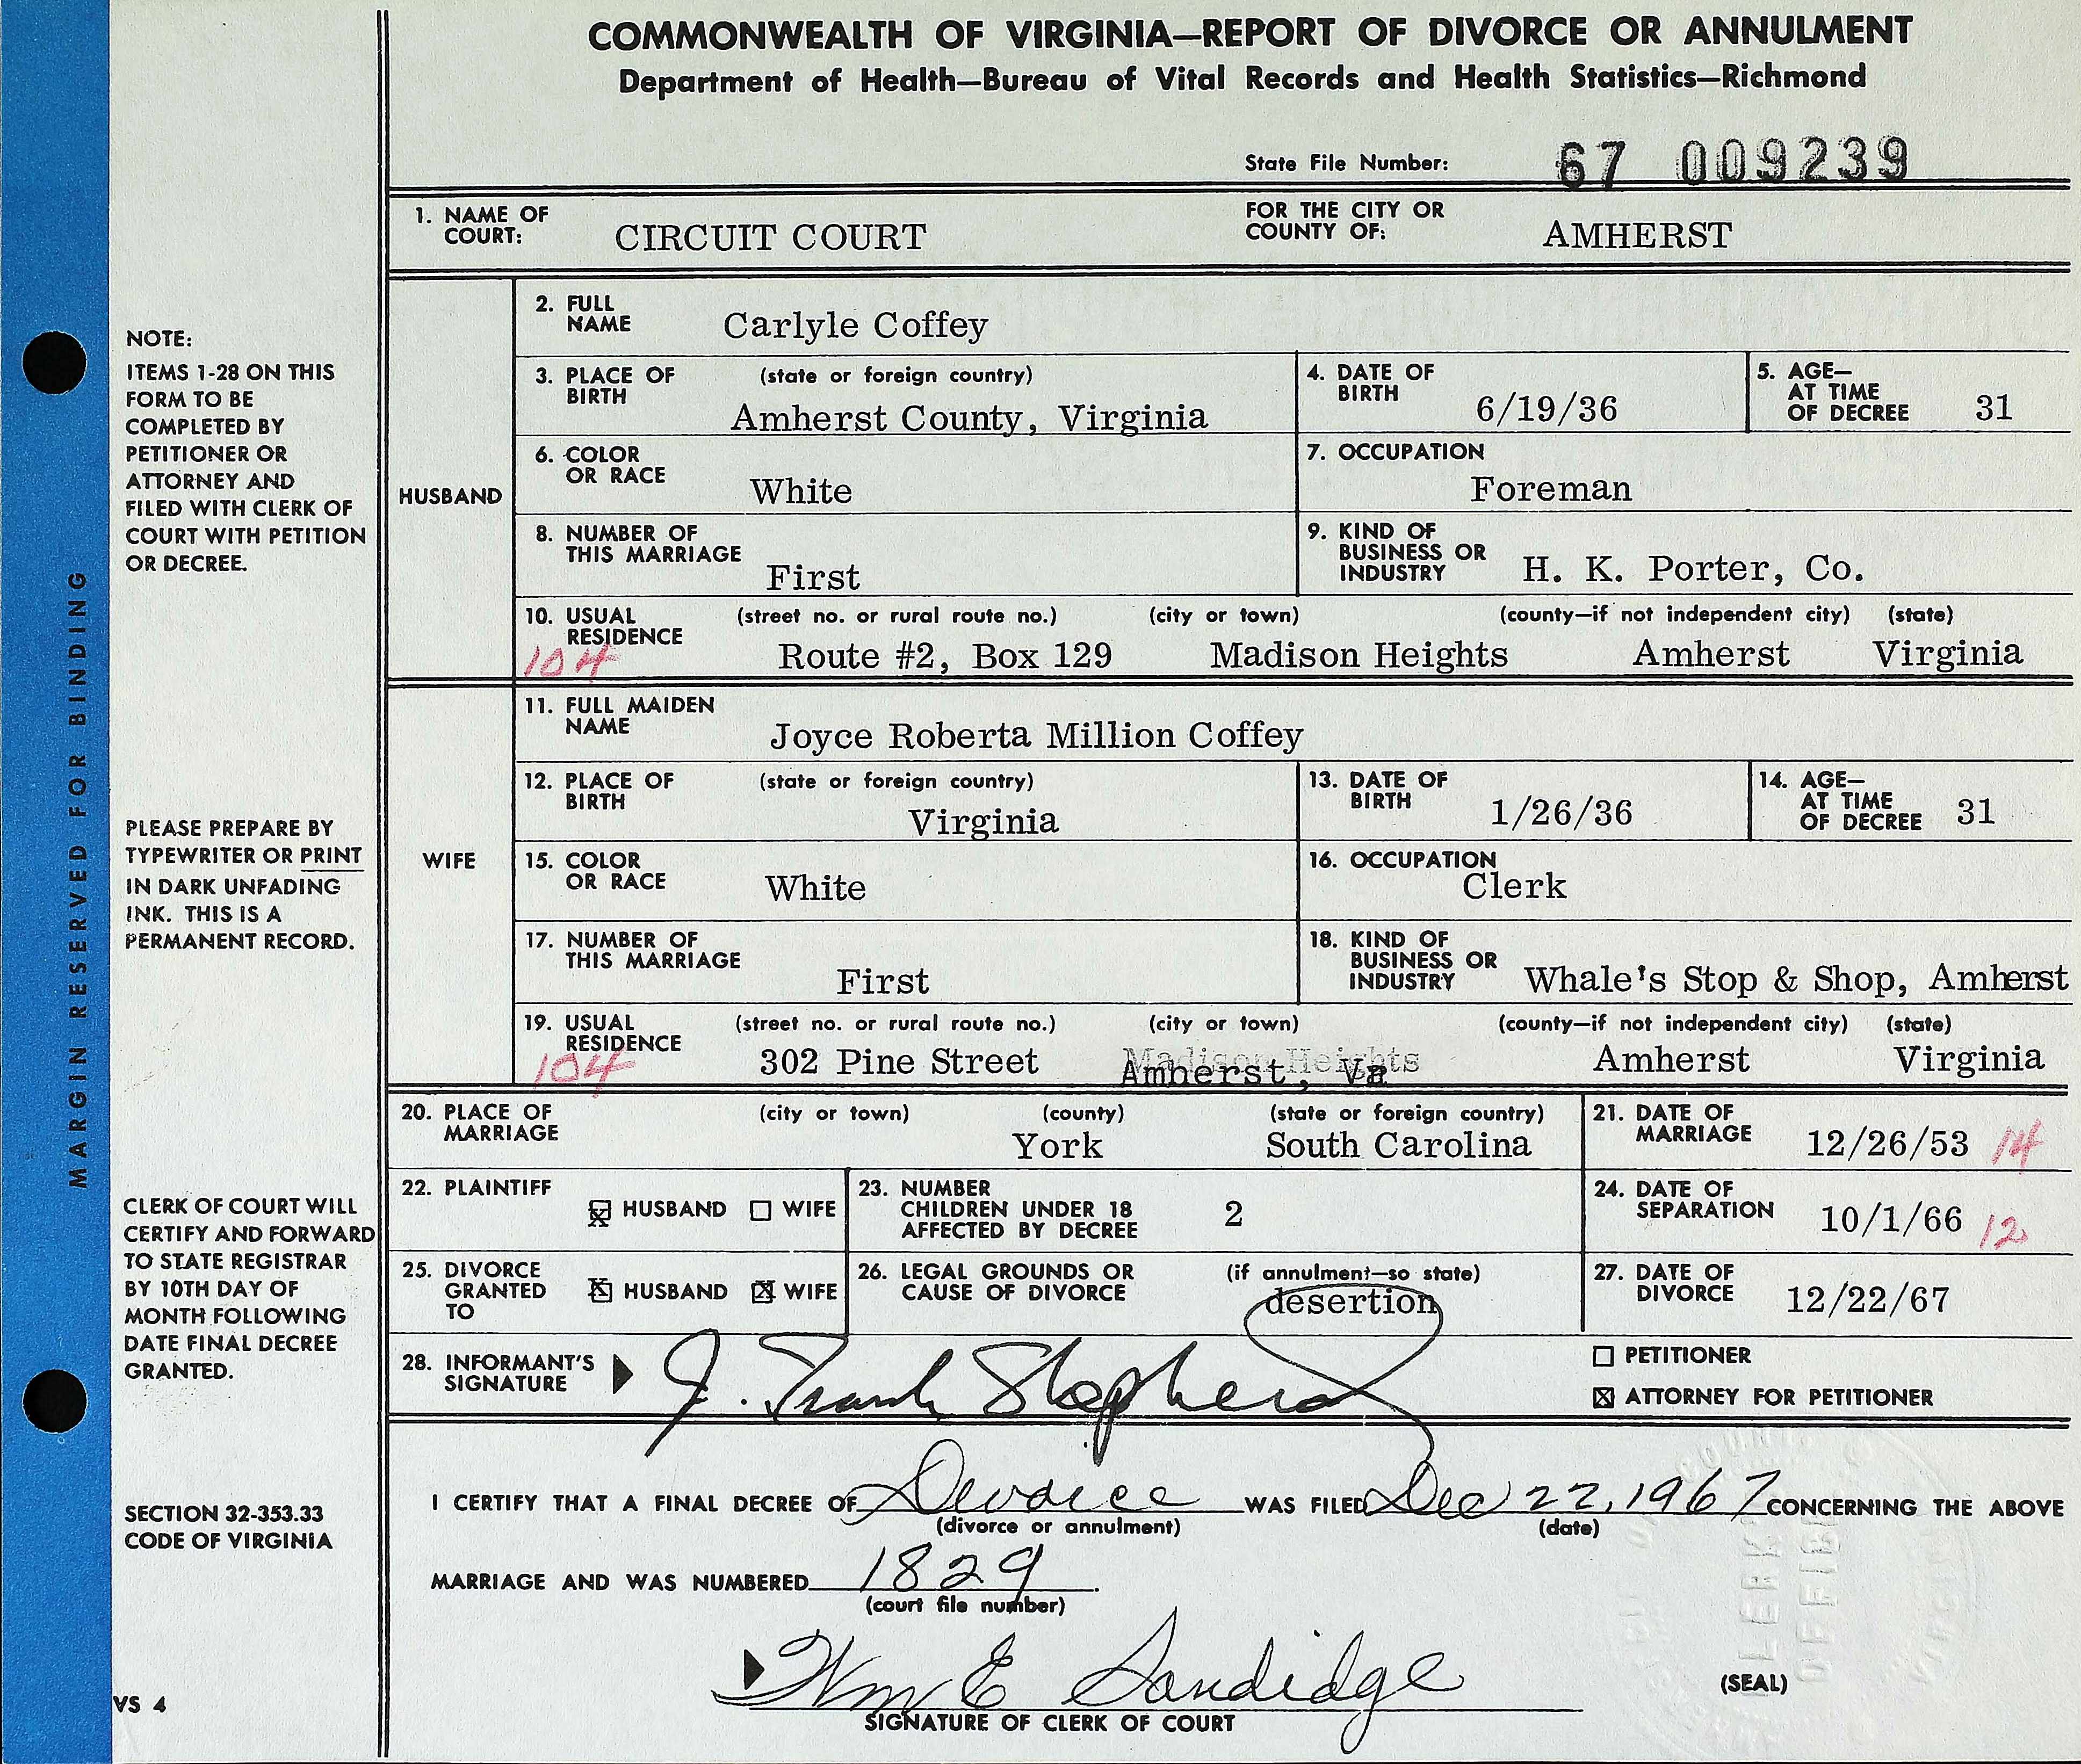 COMMONWEALTH OF VIRGINIA—REPORT OF DIVORCE OR ANNULMENT
Department of Health—Bureau of Vital Records and Health Statistics—Richmond
State File Number: 67 009239
1. NAME OF COURT: CIRCUIT COURT FOR THE CITY OR COUNTY OF: AMHERST
HUSBAND
2. FULL NAME Carlyle Coffey
3. PLACE OF BIRTH (state or foreign country) Amherst County, Virginia
4. DATE OF BIRTH 6/19/36
5. AGE— AT TIME OF DECREE 31
6. COLOR OR RACE White
7. OCCUPATION Foreman
8. NUMBER OF THIS MARRIAGE First
9. KIND OF BUSINESS OR INDUSTRY H. K. Porter, Co.
10. USUAL RESIDENCE (street no. or rural route no.) (city or town) (county—if not independent city) (state)
104 Route #2, Box 129 Madison Heights Amherst Virginia
WIFE
11. FULL MAIDEN NAME Joyce Roberta Million Coffey
12. PLACE OF BIRTH (state or foreign country) Virginia
13. DATE OF BIRTH 1/26/36
14. AGE— AT TIME OF DECREE 31
15. COLOR OR RACE White
16. OCCUPATION Clerk
17. NUMBER OF THIS MARRIAGE First
18. KIND OF BUSINESS OR INDUSTRY Whale's Stop & Shop, Amherst
19. USUAL RESIDENCE (street no. or rural route no.) (city or town) (county—if not independent city) (state)
104 302 Pine Street Madison Heights Amherst Virginia
Amherst, Va
20. PLACE OF MARRIAGE (city or town) (county) (state or foreign country)
York South Carolina
21. DATE OF MARRIAGE 12/26/53 14
22. PLAINTIFF HUSBAND WIFE
23. NUMBER CHILDREN UNDER 18 AFFECTED BY DECREE 2
24. DATE OF SEPARATION 10/1/66 12
25. DIVORCE GRANTED TO HUSBAND WIFE
26. LEGAL GROUNDS OR CAUSE OF DIVORCE (if annulment—so state) desertion
27. DATE OF DIVORCE 12/22/67
28. INFORMANT'S SIGNATURE J. Frank Shepherd
PETITIONER
ATTORNEY FOR PETITIONER
I CERTIFY THAT A FINAL DECREE OF Divorce WAS FILED Dec 22, 1967 CONCERNING THE ABOVE
(divorce or annulment) (date)
MARRIAGE AND WAS NUMBERED 1829.
(court file number)
Wm E Sandidge
SIGNATURE OF CLERK OF COURT
(SEAL)
MARGIN RESERVED FOR BINDING
NOTE:
ITEMS 1-28 ON THIS
FORM TO BE
COMPLETED BY
PETITIONER OR
ATTORNEY AND
FILED WITH CLERK OF
COURT WITH PETITION
OR DECREE.
PLEASE PREPARE BY
TYPEWRITER OR PRINT
IN DARK UNFADING
INK. THIS IS A
PERMANENT RECORD.
CLERK OF COURT WILL
CERTIFY AND FORWARD
TO STATE REGISTRAR
BY 10TH DAY OF
MONTH FOLLOWING
DATE FINAL DECREE
GRANTED.
SECTION 32-353.33
CODE OF VIRGINIA
VS 4